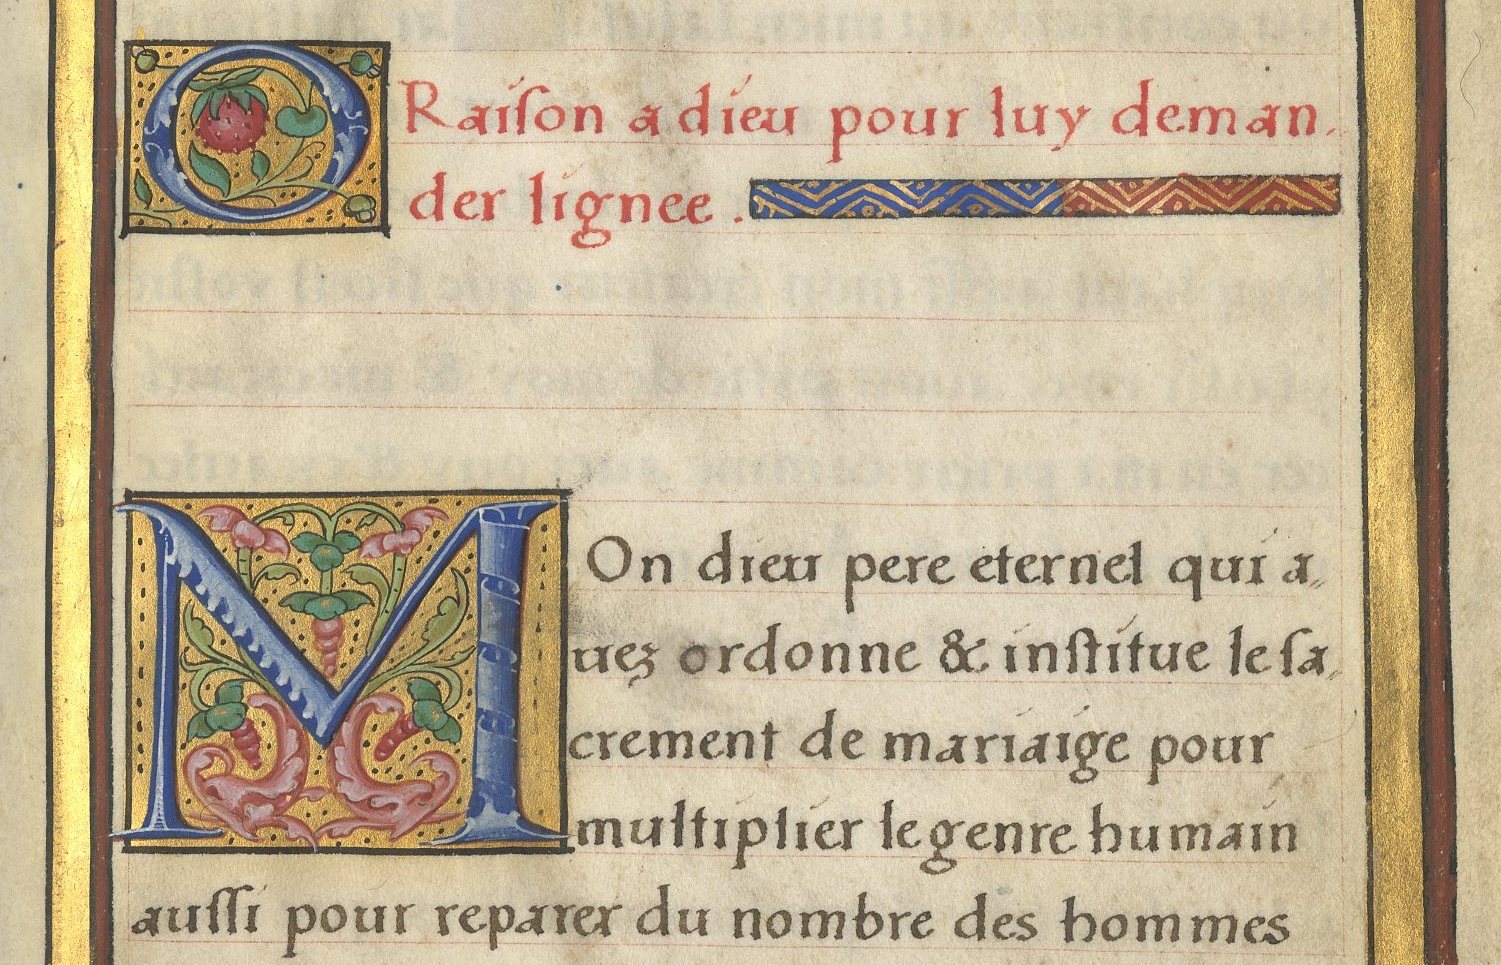 ORaiſon a dieu pour luy deman
der lignee .
MOn dieu pere eternel qui a,,
uez ordonne & inſtitue le ſa,,
crement de mariaige pour
multiplier le genre humain
auſſi pour reparer du nombre des hommes